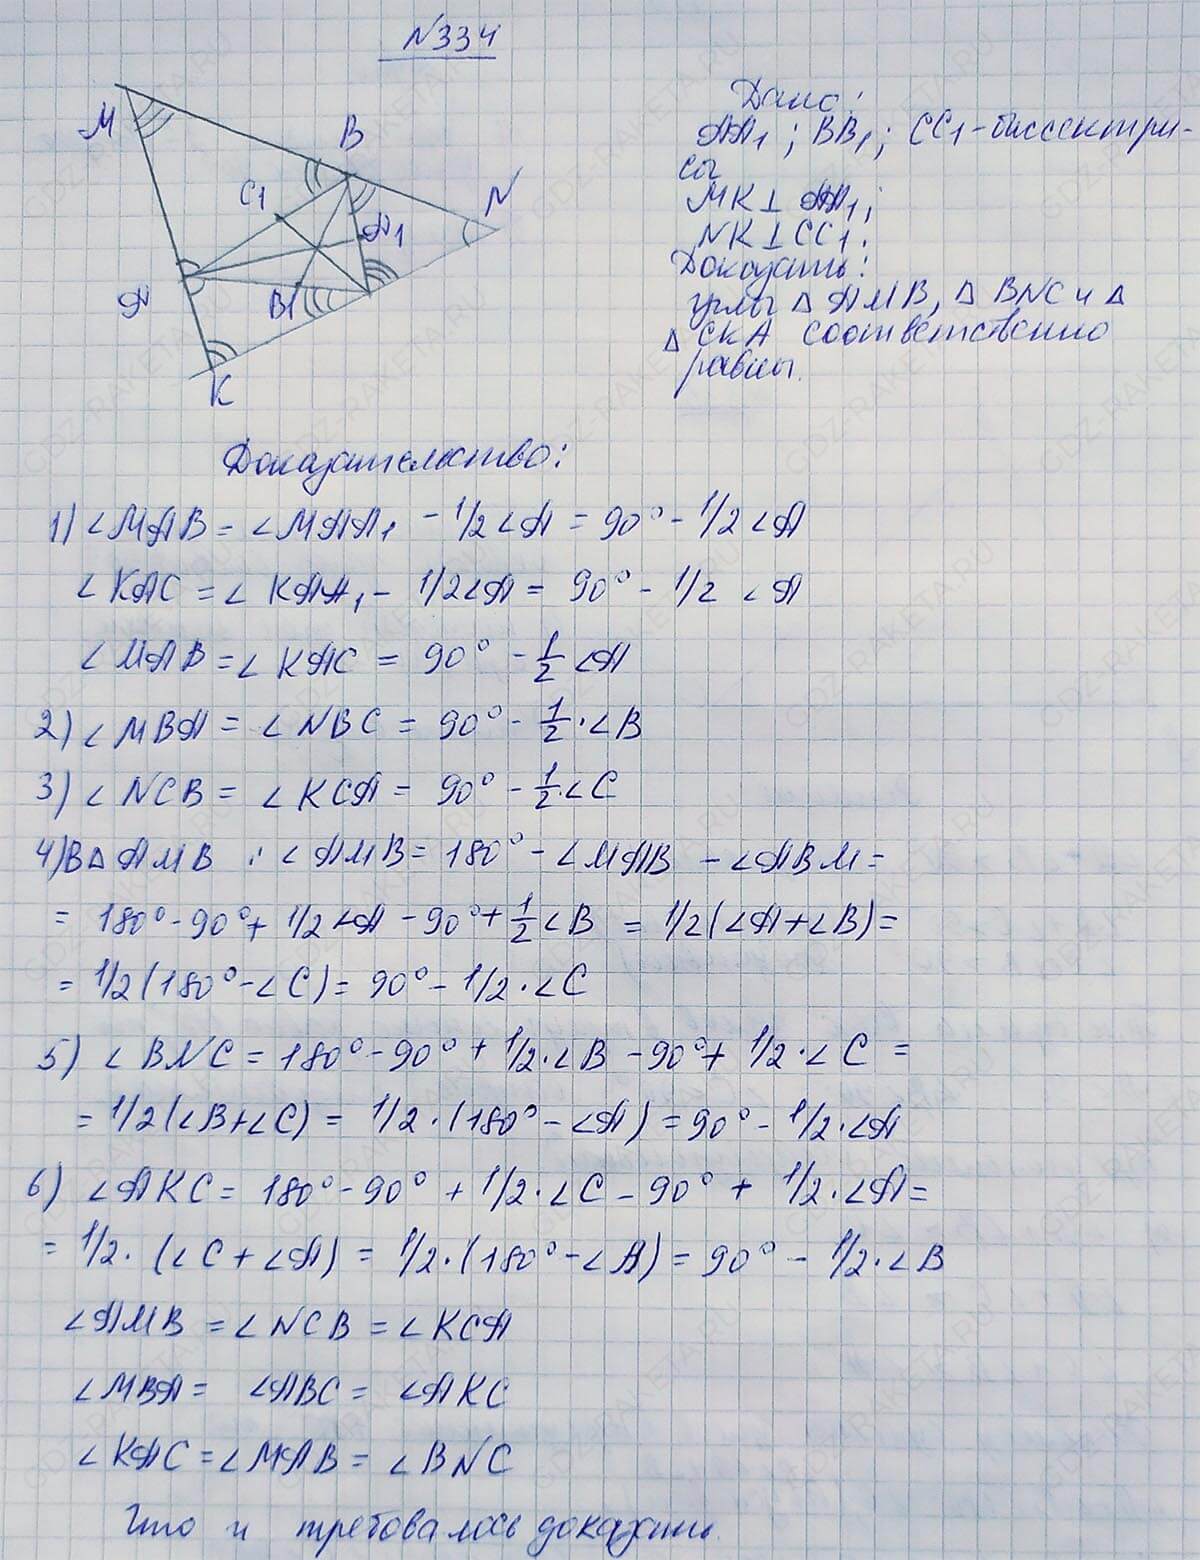 N334
M
B
N
C1
A1
A
B1
K
Дано:
AA1; BB1; CC1-биссектри-
сы
MK⊥AA1;
NK⊥CC1.
Доказать:
углы △ AMB, △ BNC и △
△ CKA соответственно
равны.
Доказательство:
1) ∠MAB = ∠MAA1 - 1/2∠A = 90° - 1/2∠A
∠KAC = ∠KAA1 - 1/2∠A = 90° - 1/2 ∠A
∠MAB = ∠KAC = 90° - 1/2 ∠A
2) ∠MBA = ∠NBC = 90° - 1/2·∠B
3) ∠NCB = ∠KCA = 90° - 1/2·∠C
4) В△ AMB : ∠AMB = 180° - ∠MAB - ∠ABM =
= 180° - 90° + 1/2∠A - 90° + 1/2∠B = 1/2(∠A+∠B) =
= 1/2(180° - ∠C) = 90° - 1/2·∠C
5) ∠BNC = 180° - 90° + 1/2·∠B - 90° + 1/2·∠C =
= 1/2(∠B+∠C) = 1/2·(180° - ∠A) = 90° - 1/2·∠A
6) ∠AKC = 180° - 90° + 1/2·∠C - 90° + 1/2·∠A =
= 1/2·(∠C + ∠A) = 1/2·(180° - ∠B) = 90° - 1/2·∠B
∠AMB = ∠NCB = ∠KCA
∠MBA = ∠ABC = ∠AKC
∠KAC = ∠MAB = ∠BNC
Что и требовалось доказать.
GDZ-RAKETA.RU